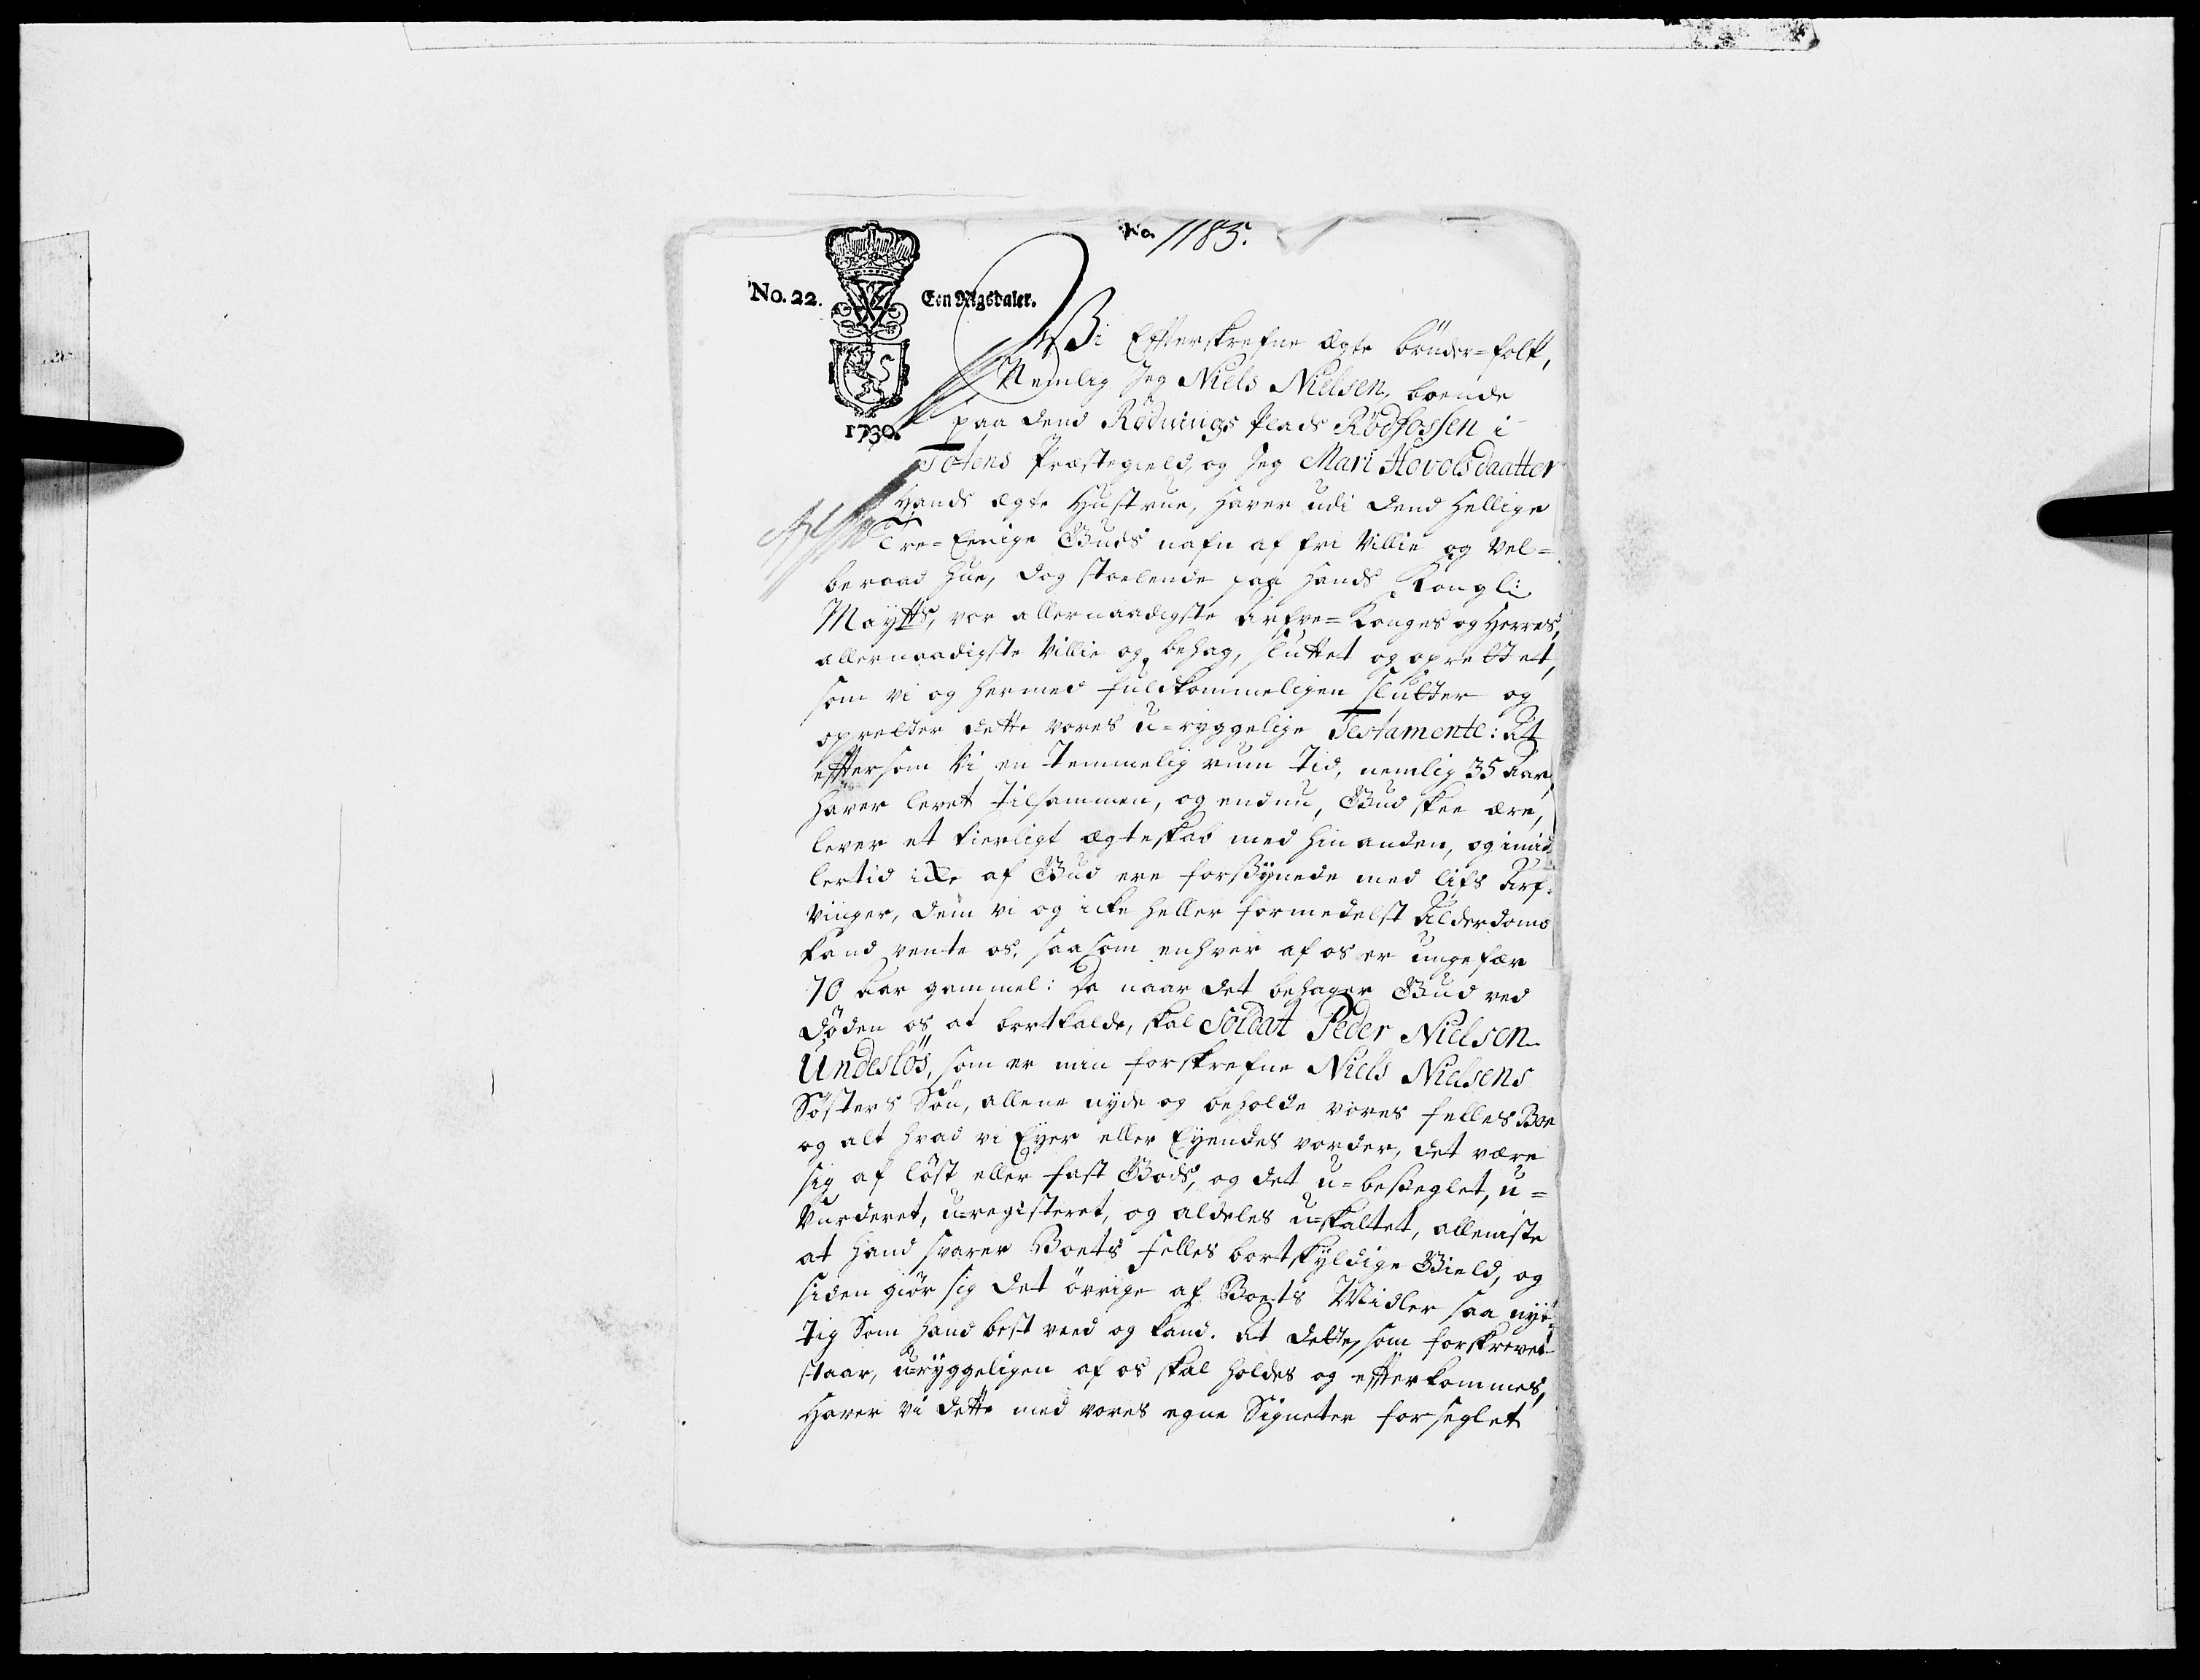 No. 1185.
No. 22.
Een Rigsdaler.
1730.
Vi Efterskrefne Ægte bönder=folk,
Nemlig Jeg Niels Nielsen, boende
paa dend Rödnings Plads Rödfossen i
Totens Præstegield, og Jeg Mari Hovolsdaatter
Hands ægte Hustrue, haver udi dend hellige
Tre=Eenige Guds nafn af fri Villie og vel=
beraad hue, dog stoelende paa hands Kongli:
Mayts, vor allernaadigste Arfve=Konges og Herres,
allernaadigste Villie og behag, sluttet og oprettet,
som vi og hermed fuldkommeligen slutter og
opretter dette vores u=ryggelige Testamente: At
eftersom Vi en temmelig rum tid, nemlig 35 Aar,
haver levet tilsammen, og endnu, Gud skee ære,
lever et kierligt ægteskab med hin anden, og imid=
lertid icke af Gud ere forsÿnede med lifs Arf=
vinger, dem vi og icke heller formedelst Alderdoms
kand vente os, saasom enhver af os er ungefær
70 Aar gammel: Da naar det behager Gud ved
döden os at bortkalde, skal Soldat Peder Nielsen
Undeslös, som er min forskrefne Niels Nielsens
Söster Sön, allene nyde og beholde vores felles Boe
og alt hvad vi Eÿer eller Eÿendes vorder, det være
sig af löst eller fast Gods, og det u=beseglet, u=
vurderet, u=registeret, og aldeles u=skaltet, alleniste
at hand svarer Boets felles bortskÿldige Gield, og
siden giör sig det övrige af Boets Midler saa nÿt=
tig Som hand best veed og kand. At dette, som forskrevet
staar, u=rÿggeligen af os skal holdes og efterkommes,
Haver vi dette med vores egne Signeter forseglet